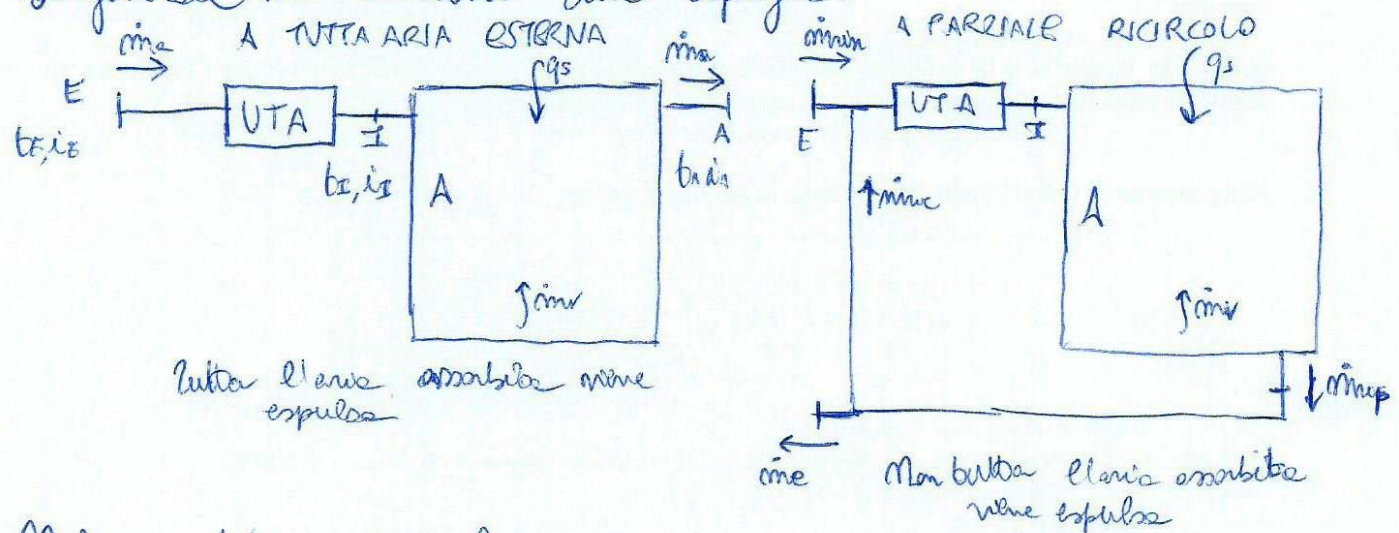 A TUTTA ARIA ESTERNA
ṁa
E
tE, iE
UTA
I
tI, iI
qs
A
ṁv
ṁa
A
tA, iA
Tutta l'aria assorbita viene
espulsa
A PARZIALE RICIRCOLO
ṁrin
E
UTA
I
qs
ṁric
A
ṁv
ṁrip
ṁe
Non tutta l'aria assorbita
viene espulsa